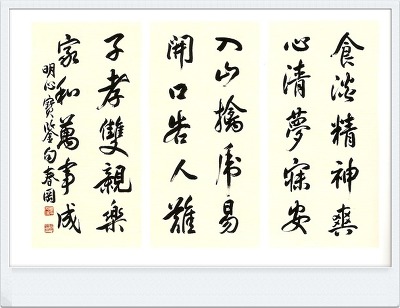 食淡精神爽
心清夢寐安
入山擒虎易
開口告人難
子孝雙親樂
家和萬事成
明心寶鑒句春園